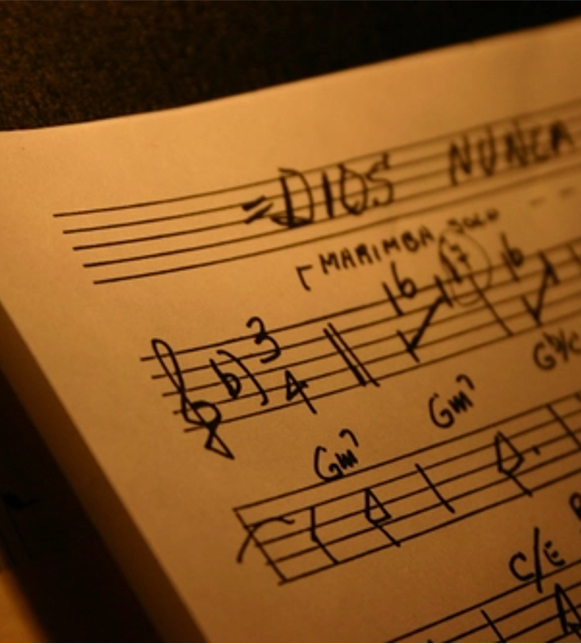 =DIOS NUNCA
MARIMBA SOLO
16 17 16
3
4
Gm7 Gm7
C/E